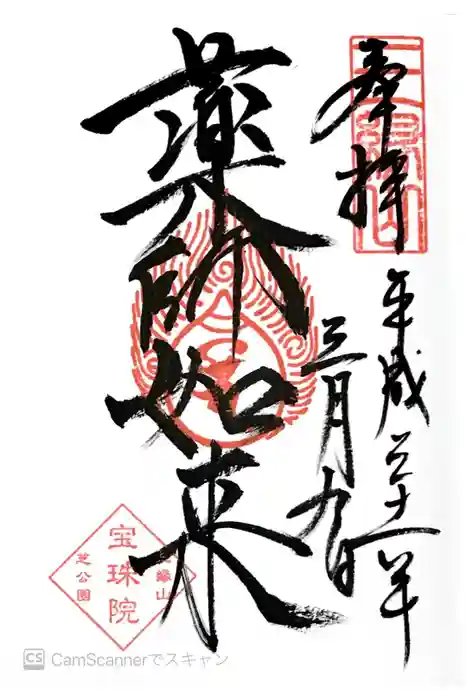 奉拝
平成三十一年
三月九日
薬師如来
三縁山
宝珠院
芝公園
CS CamScannerでスキャン